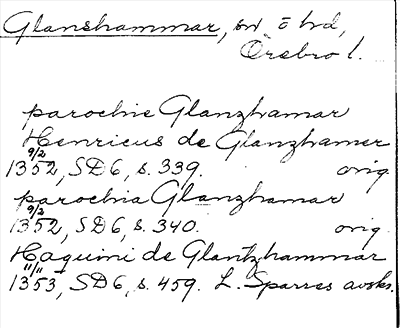 Glanshammar, sn o hd,
Örebro l.
parochie Glanzhamar
Henricus de Glanzhamer
9/2
1352, SD6, s. 339. orig.
parochia Glanzhamar
9/2
1352, SD6, s. 340. orig.
Haquini de Glantzhammar
11/11
1353, SD6, s. 459. L. Sparres avskr.